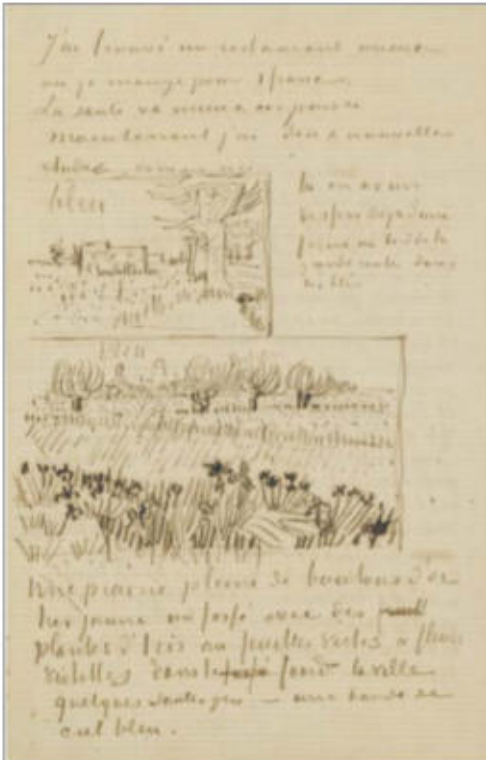 J'ai trouvé un restaurant mieux
où je mange pour 1 franc.
La santé va mieux ces jours ci
Maintenant j'ai deux nouvelles
études comme
bleu
il y en as une
ferme au bord de la
grande route dans
les blés
bleu
Une prairie pleine de boutons d'or
très jaune un fossé avec des
plantes d'iris aux feuilles vertes à fleurs
violettes dans le fond la ville
quelques saules gris — une bande de
ciel bleu.